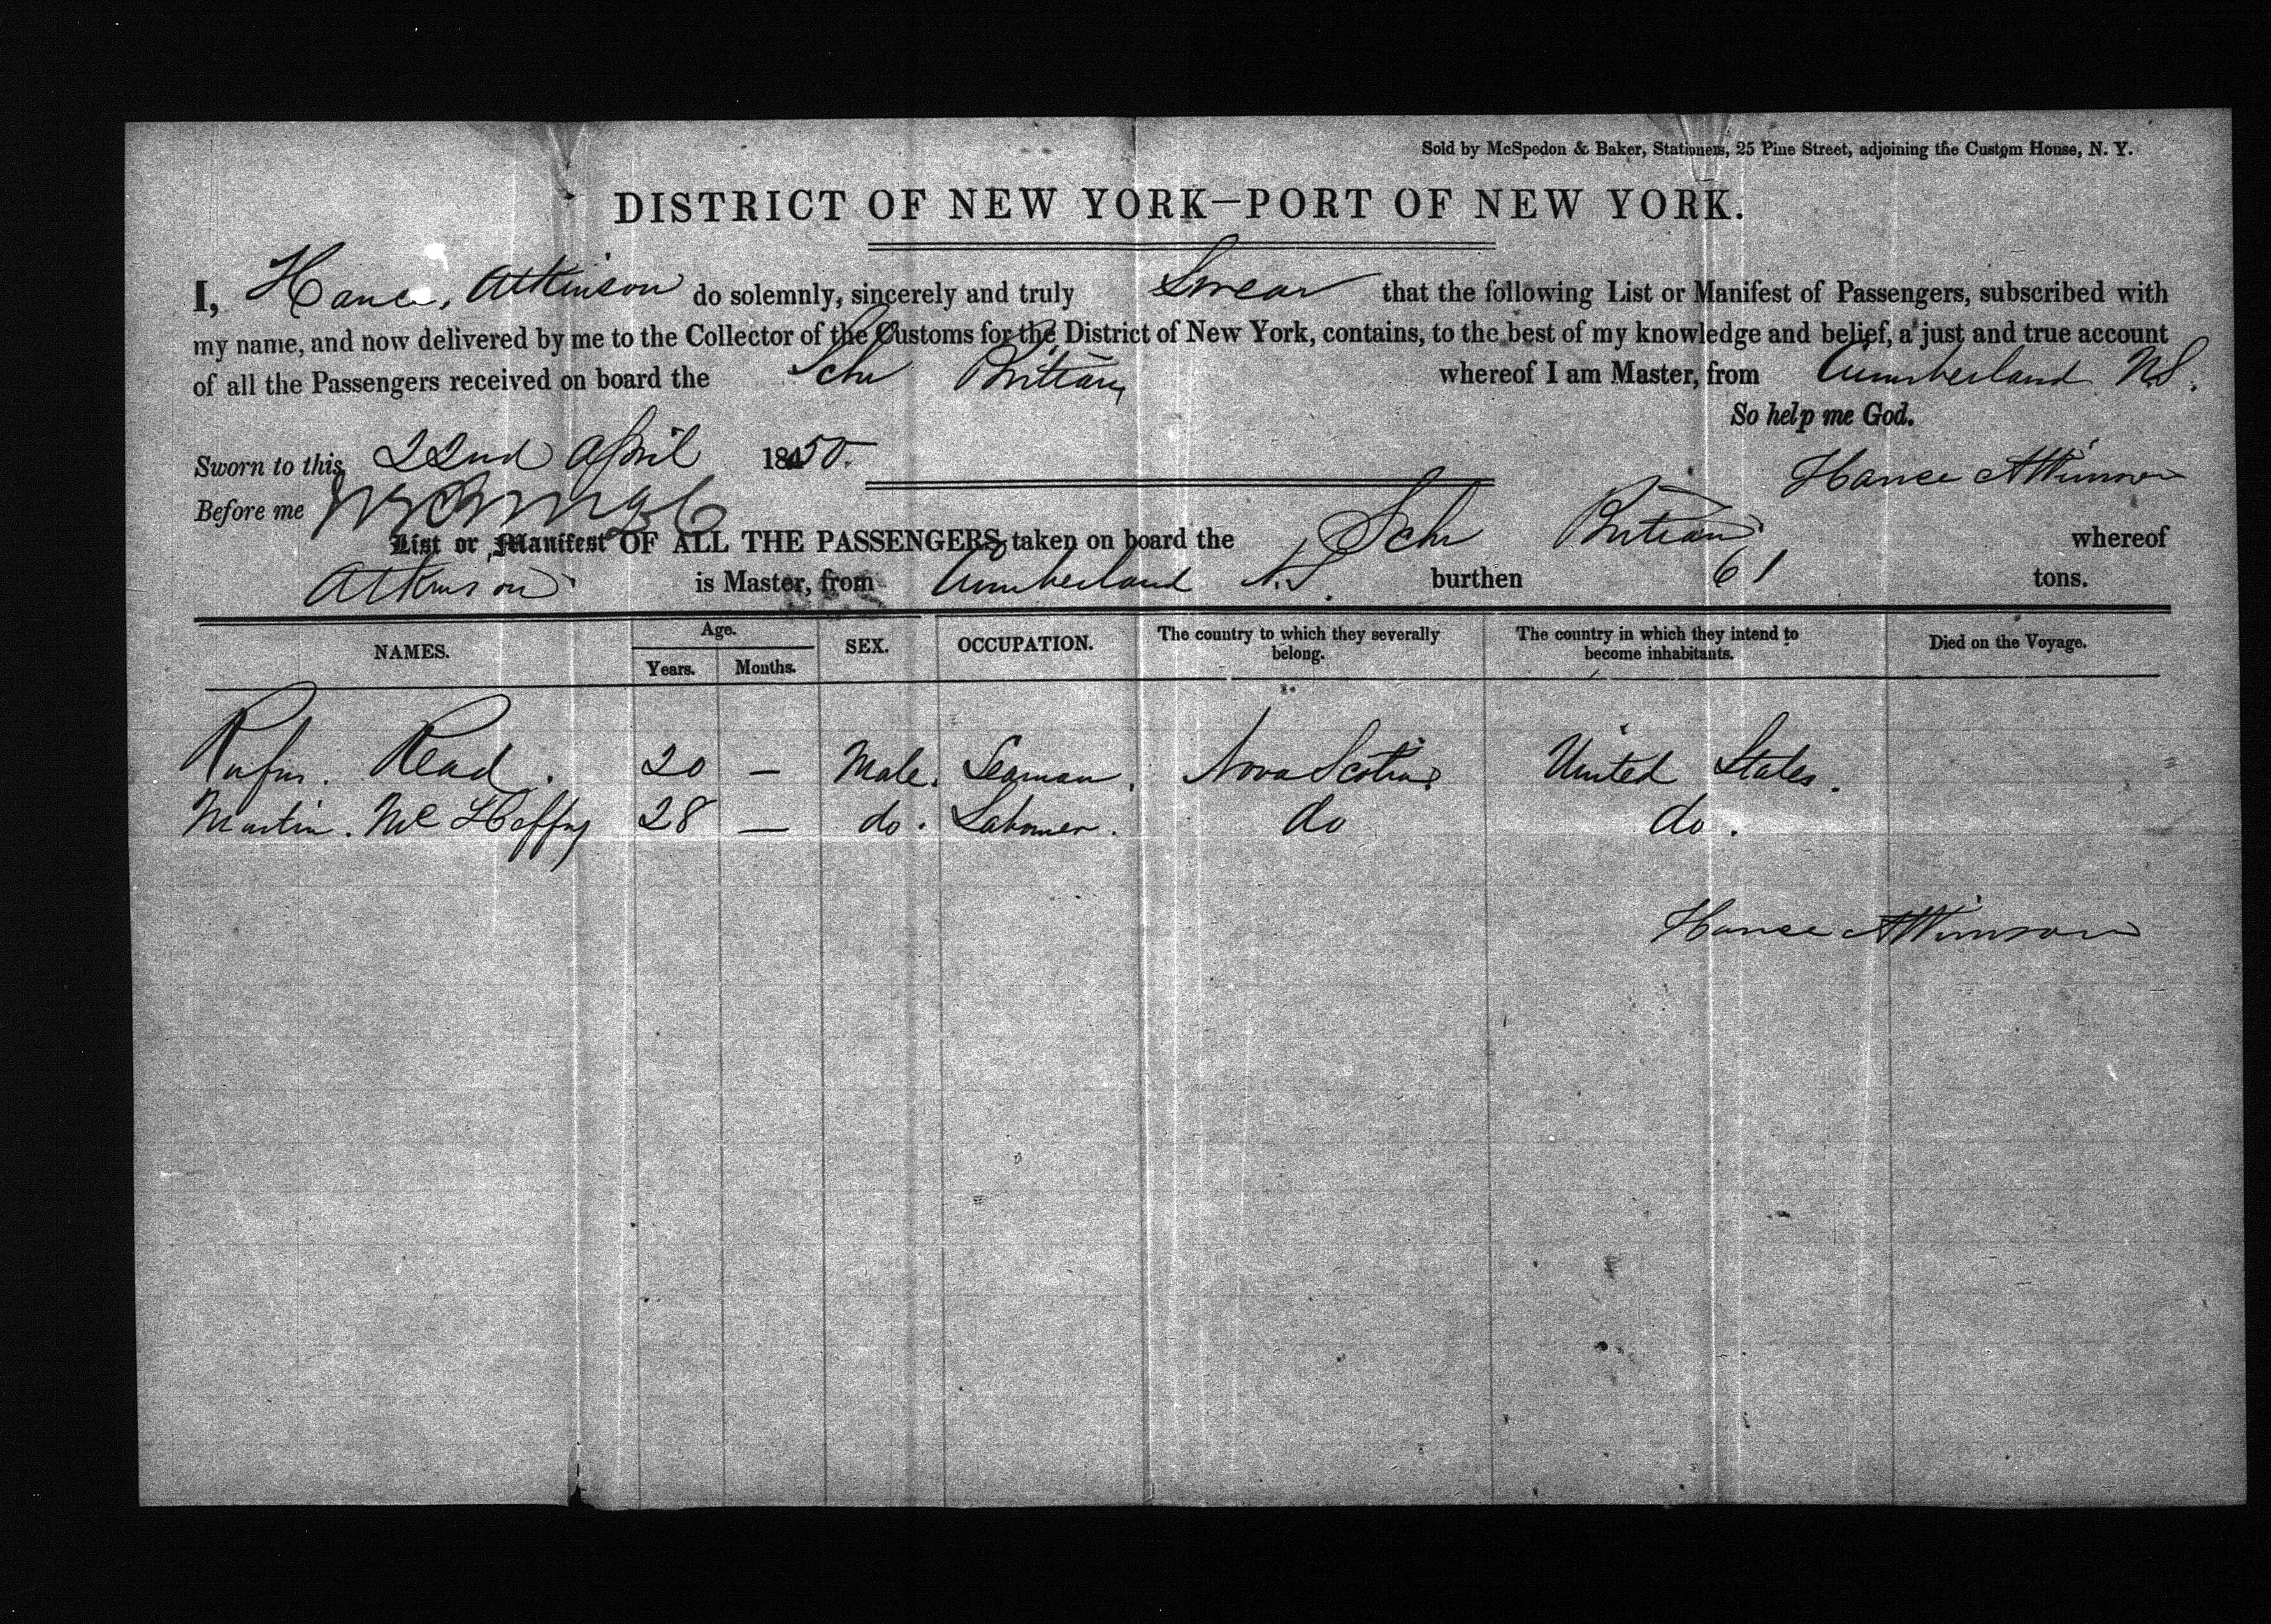 Sold by McSpedon & Baker, Stationers, 25 Pine Street, adjoining the Custom House, N. Y.
DISTRICT OF NEW YORK—PORT OF NEW YORK.
I, Hance, Atkinson do solemnly, sincerely and truly Swear that the following List or Manifest of Passengers, subscribed with
my name, and now delivered by me to the Collector of the Customs for the District of New York, contains, to the best of my knowledge and belief, a just and true account
of all the Passengers received on board the Schr whereof I am Master, from Cumberland N.S.
So help me God.
Sworn to this 22nd April 1850. Hance Atkinson
Before me
List or Manifest OF ALL THE PASSENGERS taken on board the Schr whereof
Atkinson is Master, from Cumberland N.S. burthen 61 tons.
NAMES. Age. Years. Months. SEX. OCCUPATION. The country to which they severally belong. The country in which they intend to become inhabitants. Died on the Voyage.
Rufus. Read. 20 — Male. Seaman. Nova Scotia United States.
Martin. Mc Heffy 28 — do. Labourer. do do.
Hance Atkinson